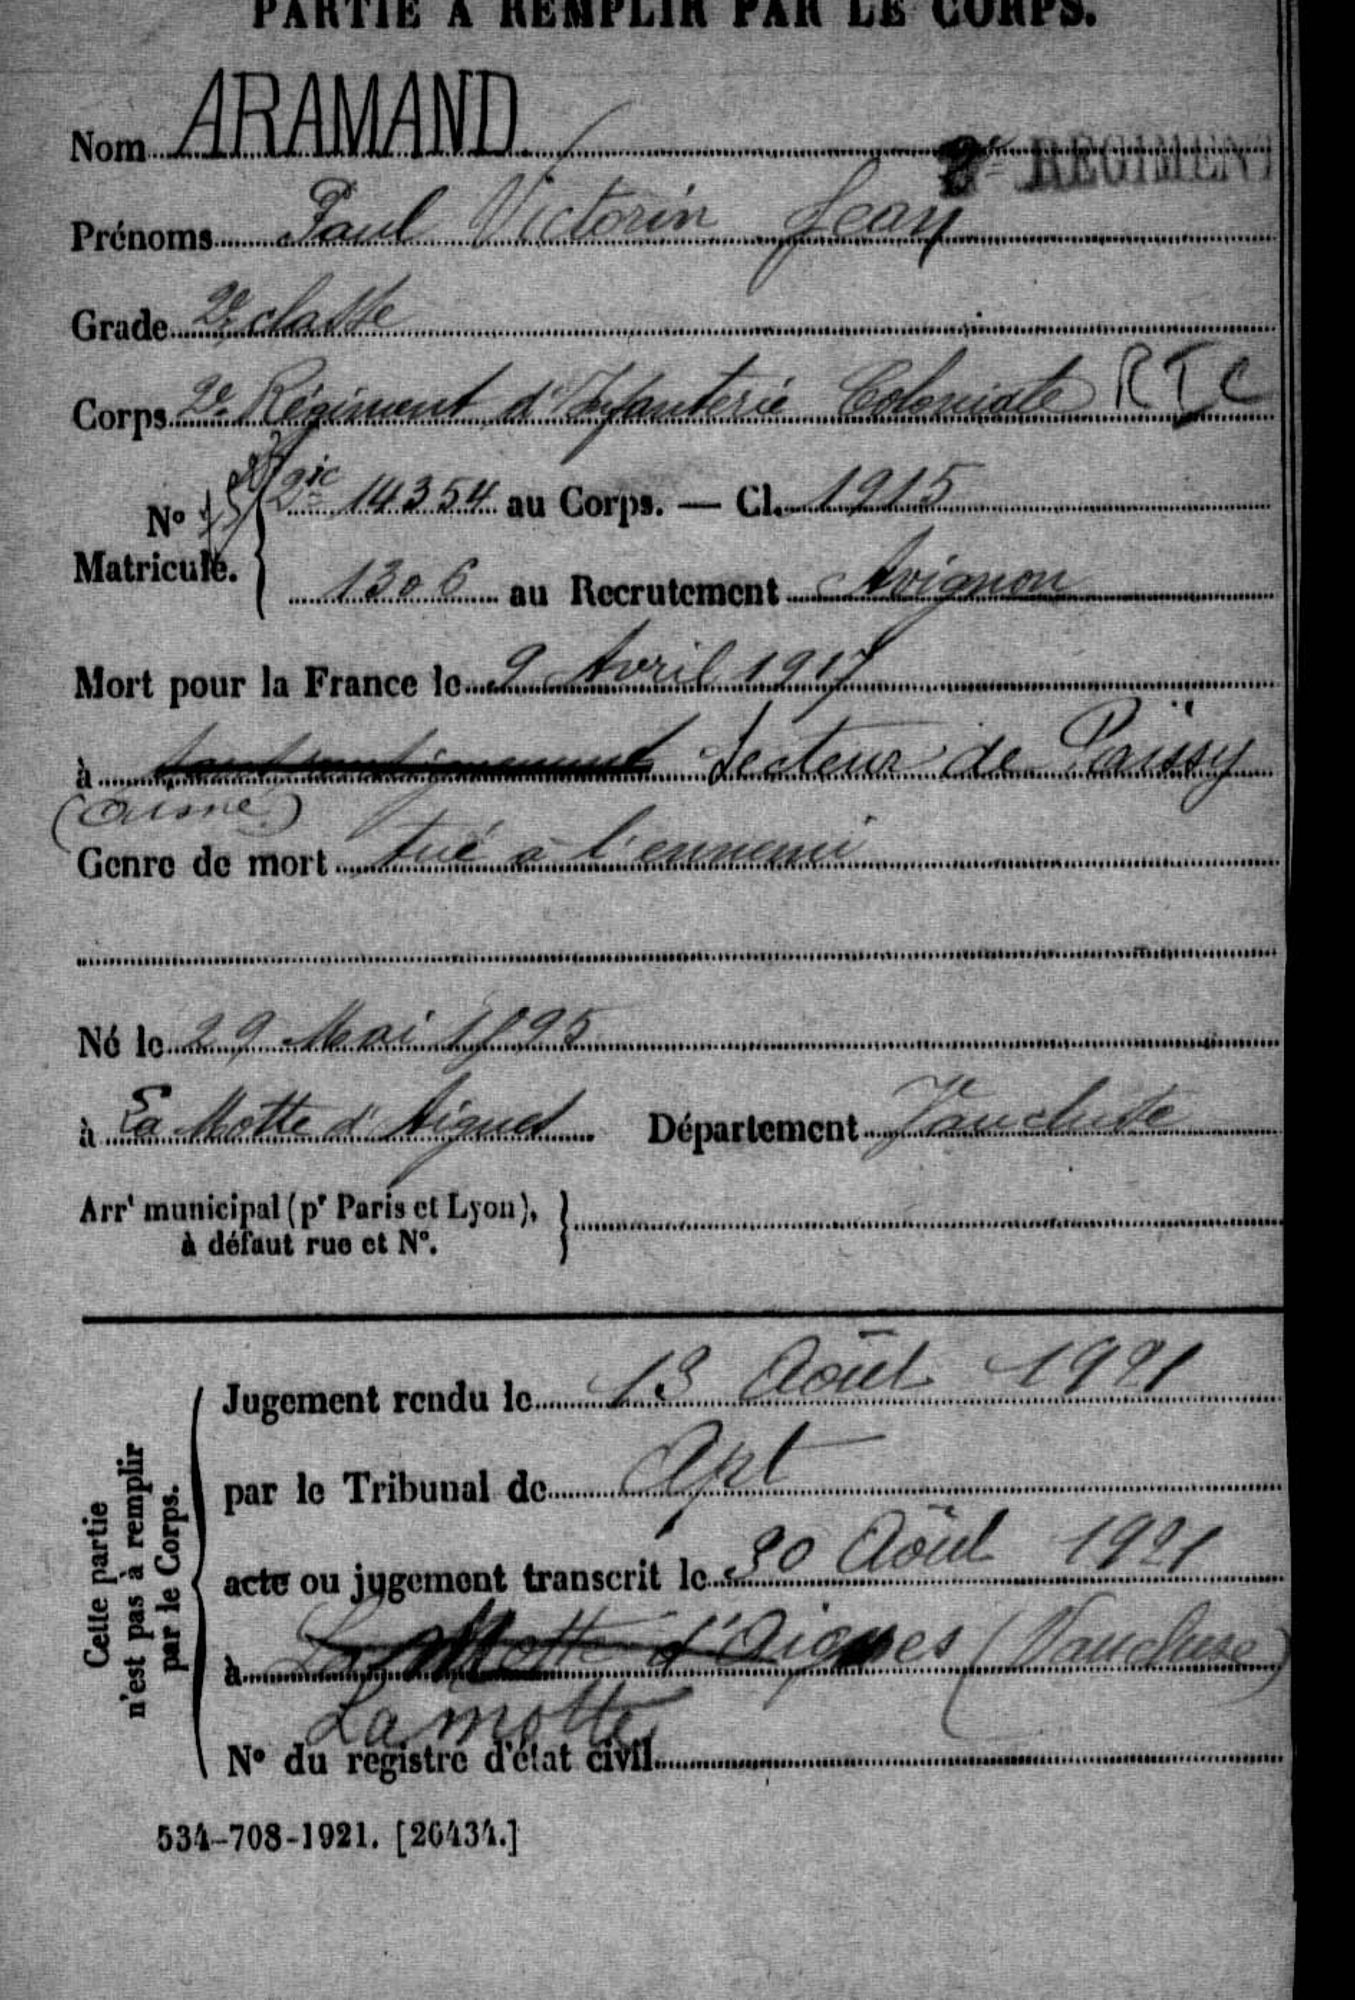 PARTIE A REMPLIR PAR LE CORPS.
Nom ARAMAND
2e REGIMENT
Prénoms Paul Victorin Jean
Grade 2e classe
Corps 2e Régiment d'Infanterie Coloniale RIC
No Matricule. 2ic 14354 au Corps. — Cl. 1915
1306 au Recrutement Avignon
Mort pour la France le 9 Avril 1917
à Secteur de Païssy
(Aisne)
Genre de mort tué à l'ennemi
Né le 29 Mai 1895
à La Motte d'Aigues Département Vaucluse
Arrt municipal (pr Paris et Lyon),
à défaut rue et N°.
Cette partie
n'est pas à remplir
par le Corps.
Jugement rendu le 13 Août 1921
par le Tribunal de Apt
acte ou jugement transcrit le 30 Août 1921
à La Motte d'Aigues (Vaucluse)
Lamotte
N° du registre d'état civil
534-708-1921. [26434.]